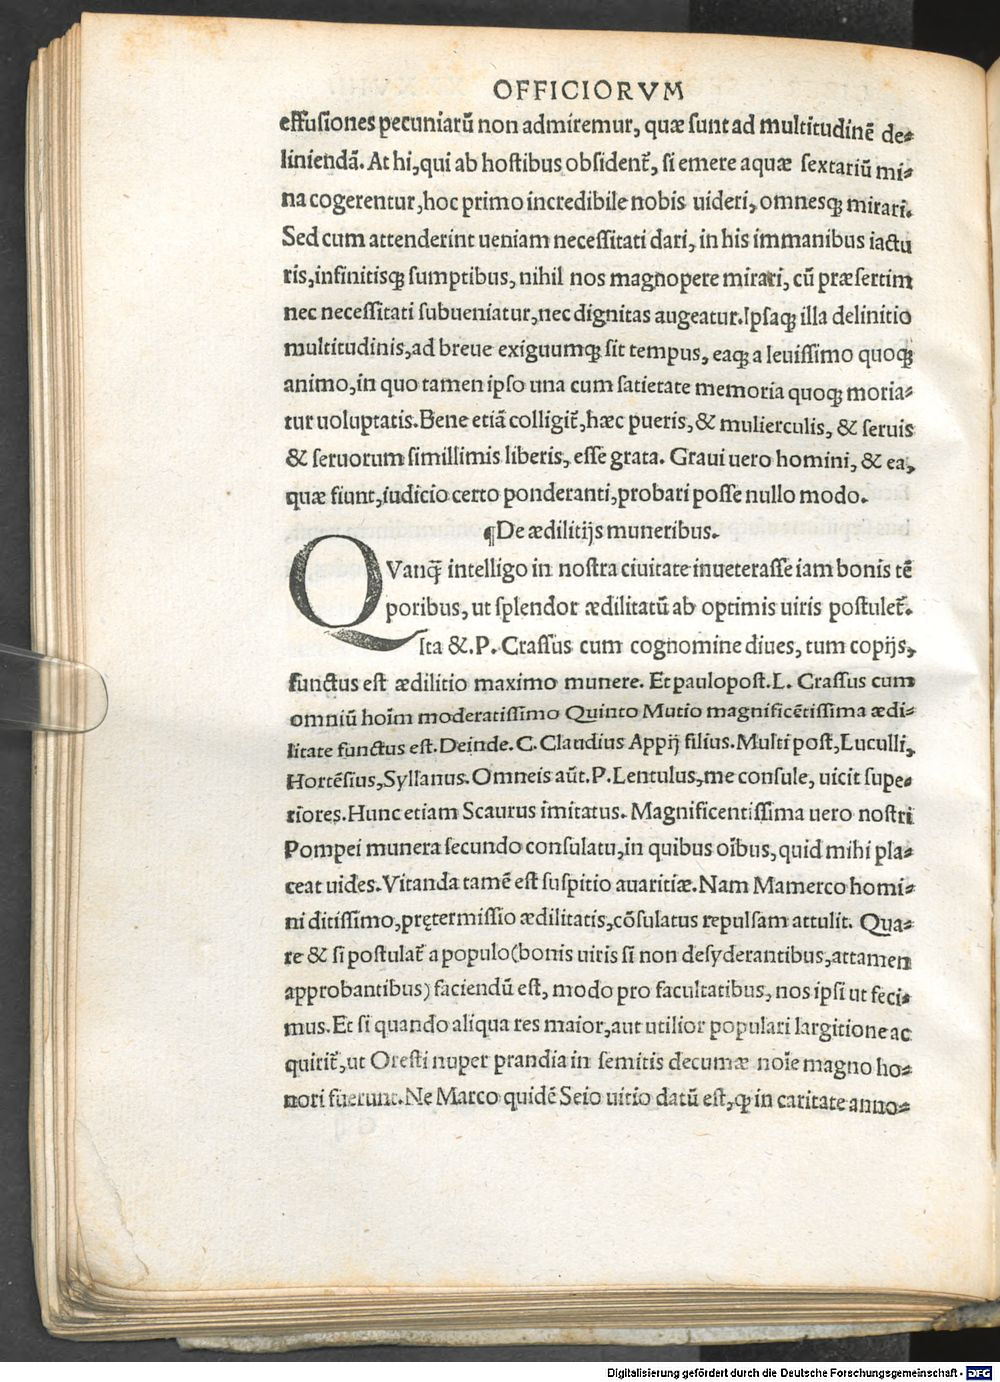 OFFICIORVM
effusiones pecuniarũ non admiremur, quæ sunt ad multitudinẽ de-
liniendã. At hi, qui ab hostibus obsident̃, si emere aquæ sextariũ mi-
na cogerentur, hoc primo incredibile nobis uideri, omnesq; mirari.
Sed cum attenderint ueniam necessitati dari, in his immanibus iactu
ris, infinitisq; sumptibus, nihil nos magnopere mirari, cũ præsertim
nec necessitati subueniatur, nec dignitas augeatur. Ipsaq; illa delinitio
multitudinis, ad breue exiguumq; sit tempus, eaq; a leuissimo quoq;
animo, in quo tamen ipso una cum satietate memoria quoq; moria-
tur uoluptatis. Bene etiã colligit̃, hæc pueris, & mulierculis, & seruis
& seruorum simillimis liberis, esse grata. Graui uero homini, & ea,
quæ fiunt, iudicio certo ponderanti, probari posse nullo modo.
¶De ædilitijs muneribus.
QVanq̃ intelligo in nostra ciuitate inueterasse iam bonis tẽ
poribus, ut splendor ædilitatũ ab optimis uiris postulet̃.
Ita &. P. Crassus cum cognomine diues, tum copijs,
functus est ædilitio maximo munere. Et paulopost. L. Crassus cum
omniũ hoĩm moderatissimo Quinto Mutio magnificẽtissima ædi-
litate functus est. Deinde. C. Claudius Appij filius. Multi post, Luculli,
Hortẽsius, Syllanus. Omneis aũt. P. Lentulus, me consule, uicit supe-
riores. Hunc etiam Scaurus imitatus. Magnificentissima uero nostri
Pompei munera secundo consulatu, in quibus oĩbus, quid mihi pla-
ceat uides. Vitanda tamẽ est suspitio auaritiæ. Nam Mamerco homi-
ni ditissimo, prętermissio ædilitatis, cõsulatus repulsam attulit. Qua-
re & si postulat̃ a populo (bonis uiris si non desyderantibus, attamen
approbantibus) faciendũ est, modo pro facultatibus, nos ipsi ut feci-
mus. Et si quando aliqua res maior, aut utilior populari largitione ac
quirit̃, ut Oresti nuper prandia in semitis decumæ noĩe magno ho-
nori fuerunt. Ne Marco quidẽ Seio uitio datũ est, ꝙ in caritate anno-
Digitalisierung gefördert durch die Deutsche Forschungsgemeinschaft - DFG